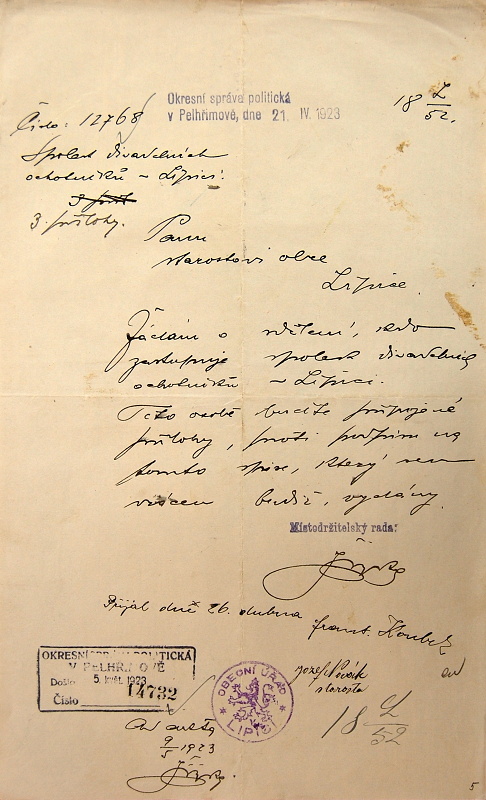 Okresní správa politická
v Pelhřimově, dne 21. IV. 1923
18 2/52.
Číslo: 12768
Spolek divadelních
ochotníků – Lipici.
3 přílohy.
Panu
starostovi obce
Lipice.
Žádám o sdělení, kdo
zastupuje spolek divadelních
ochotníků – Lipici.
Této osobě buďte připojené
přílohy, proti podpisu na
tomto spise, který sem
vrácen budiž, vydány.
Místodržitelský rada:
Přijal dne 26. dubna
Frant. Koubek
OKRESNÍ SPRÁVA POLITICKÁ
V PELHŘIMOVĚ
Došlo 5. květ. 1923
Číslo 14732
OBECNÍ ÚŘAD
LIPIC
Josef Novák
starosta
18 2/52
9/5 1923
5